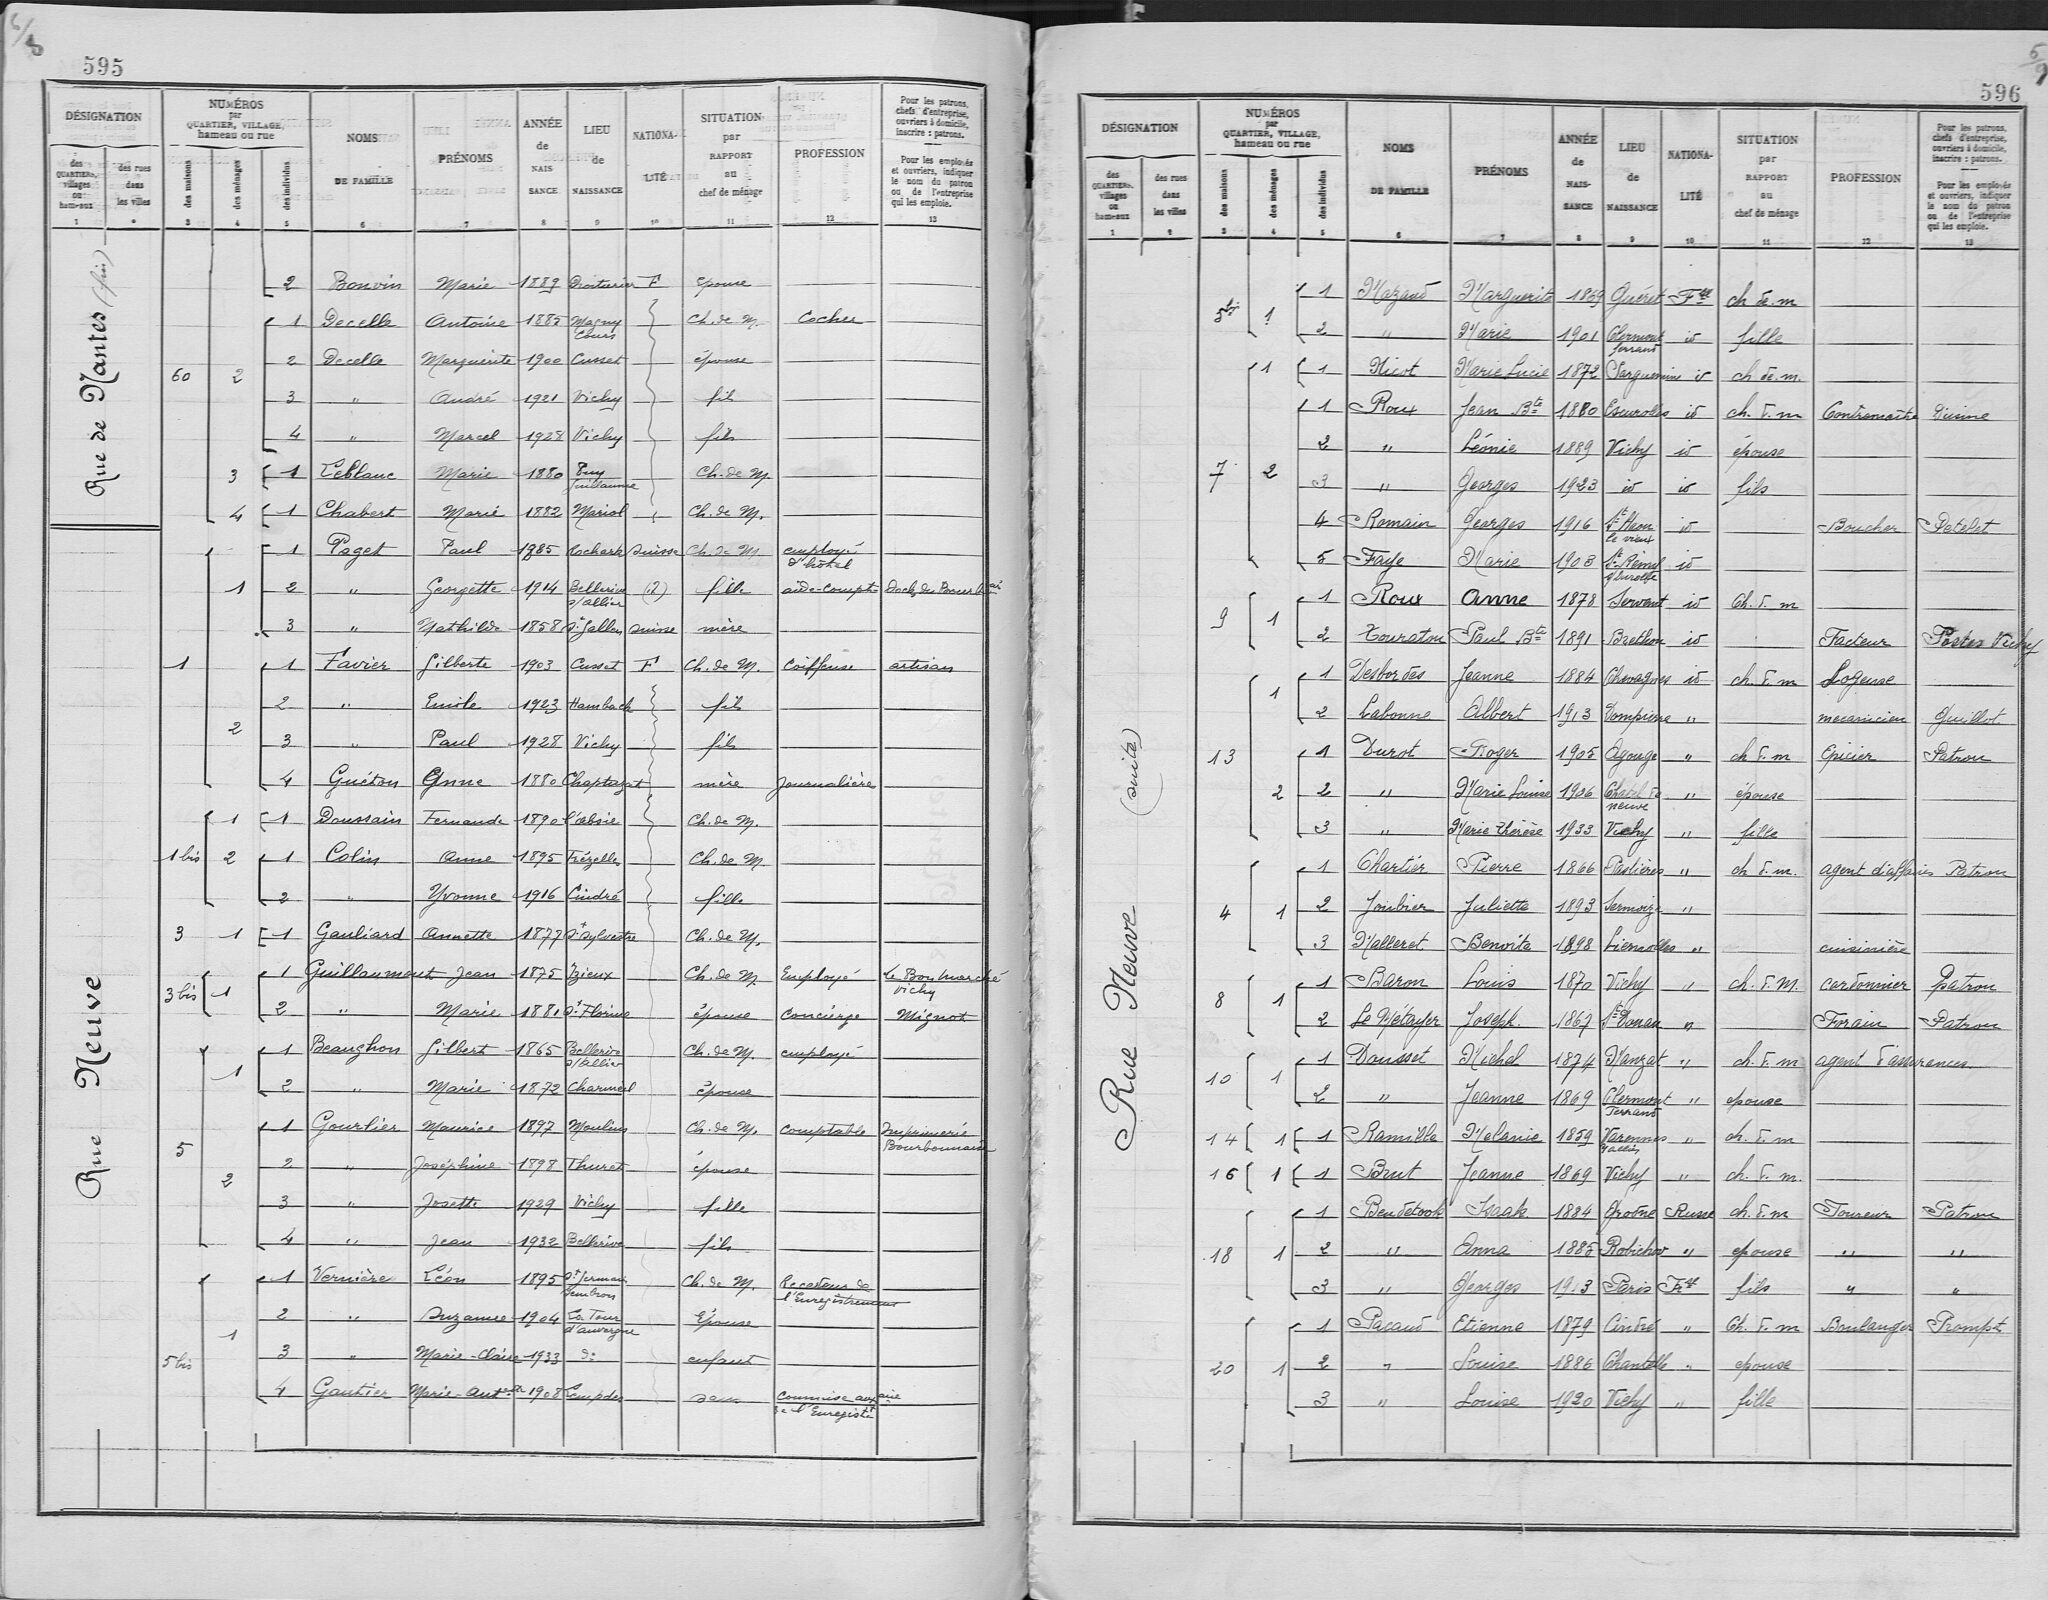 6/8
595
DÉSIGNATION
NUMÉROS par QUARTIER, VILLAGE, hameau ou rue
NOMS DE FAMILLE
PRÉNOMS
ANNÉE de NAISSANCE
LIEU de NAISSANCE
NATIONALITÉ
SITUATION par RAPPORT au chef de ménage
PROFESSION
Pour les patrons, chefs d'entreprise, ouvriers à domicile, inscrire : patrons.
Pour les employés et ouvriers, indiquer le nom du patron ou de l'entreprise qui les emploie.
des QUARTIERS, villages ou hameaux
des rues dans les villes
des maisons
des ménages
des individus
1 2 3 4 5 6 7 8 9 10 11 12 13
Rue de Nantes (fin)
2 Bonvin Marie 1889 F épouse
60 2 1 Decelle Antoine 1885 Magny Cours Ch. de M. Cocher
2 Decelle Marguerite 1900 Cusset épouse
3 " André 1921 Vichy fils
4 " Marcel 1928 Vichy fils
3 1 Leblanc Marie 1880 Puy Guillaume Ch. de M.
4 1 Chabert Marie 1882 Mariol Ch. de M.
Rue Neuve
1 1 1 Paget Paul 1885 suisse Ch. de M. employé d'hôtel
2 " Georgette 1914 Bellerive s/allier (2) fille aide-compt
3 " Mathilde 1858 St Gallen suisse mère
2 1 Favier Gilberte 1903 Cusset F Ch. de M. Coiffeuse artisan
2 " Emile 1923 Hambach fils
3 " Paul 1928 Vichy fils
4 Guéton Anne 1880 Chaptuzat mère Journalière
1 bis 1 1 Doussain Fernande 1890 l'absie Ch. de M.
2 1 Colin Anne 1895 Trézelles Ch. de M.
2 " Yvonne 1916 Cindré fille
3 1 1 Gauliard Annette 1877 St Sylvestre Ch. de M.
3 bis 1 1 Guillaumont Jean 1875 Izieux Ch. de M. Employé Le Bon Marché Vichy
2 " Marie 1881 Ste Florine épouse Concierge Mignot
5 1 1 Beauchon Gilbert 1865 Bellerive s/Allier Ch. de M. employé
2 " Marie 1872 Charmeil épouse
2 1 Gourlier Maurice 1897 Moulins Ch. de M. Comptable Imprimerie Bourbonnaise
2 " Joséphine 1898 Thuret épouse
3 " Josette 1929 Vichy fille
4 " Jean 1932 Bellerive fils
5 bis 1 1 Vernière Léon 1895 St Germain Lembron Ch. de M. Receveur de l'Enregistrement
2 " Suzanne 1904 La Tour d'auvergne Épouse
3 " Marie-Claire 1933 do enfant
4 Gautier Marie-Antte 1908 Lempdes commise auxaire de l'Enregistt
5/9
596
DÉSIGNATION
NUMÉROS par QUARTIER, VILLAGE, hameau ou rue
NOMS DE FAMILLE
PRÉNOMS
ANNÉE de NAISSANCE
LIEU de NAISSANCE
NATIONALITÉ
SITUATION par RAPPORT au chef de ménage
PROFESSION
Pour les patrons, chefs d'entreprise, ouvriers à domicile, inscrire : patrons.
Pour les employés et ouvriers, indiquer le nom du patron ou de l'entreprise qui les emploie.
des QUARTIERS, villages ou hameaux
des rues dans les villes
des maisons
des ménages
des individus
1 2 3 4 5 6 7 8 9 10 11 12 13
Rue Neuve (suite)
5 bis 1 1 Mazaud Marguerite 1869 Guéret Fse ch de. m
2 " Marie 1901 Clermont ferrand id fille
7 1 1 Nicot Marie Lucie 1872 Sarguemins id ch de. m.
2 1 Roux Jean Bte 1880 Escurolles id ch. d. m Contremaître Usine
2 " Léonie 1889 Vichy id épouse
3 " Georges 1923 id id fils
4 Romain Georges 1916 St Haon le vieux id Boucher Patelet
5 Faye Marie 1903 St Rémy s/Durolle id
9 1 1 Roux Anne 1878 Servant id Ch. d. m
2 Touraton Paul Bte 1891 Brethon id Facteur Postes Vichy
13 1 1 Desbordes Jeanne 1884 Chevagnes id ch. d. m Logeuse
2 Labonne Albert 1913 Dompierre " mecanicien Guillot
2 1 Durot Roger 1905 Agouge " ch d. m Epicier Patron
2 " Marie Louise 1906 Chapelle neuve " épouse
3 " Marie Thérèse 1933 Vichy " fille
4 1 1 Chartier Pierre 1866 Paslières " ch d. m. agent d'affaires Patron
2 Joubier Juliette 1893 Sermoize "
3 Malleret Benoite 1898 Liernolles " cuisinière
8 1 1 Baron Louis 1870 Vichy " ch. d. M. cordonnier patron
2 Le Métayer Joseph 1867 St Donan " Forain Patron
10 1 1 Dousset Michel 1874 Manzat " ch. d. m agent d'assurances
2 " Jeanne 1869 Clermont Ferrand " epouse
14 1 1 Ramille Mélanie 1859 Varennes s/allier " ch. d. m
16 1 1 Brut Jeanne 1869 Vichy " ch. d. m.
18 1 1 Bendetook Isaak 1884 Grodne Russe ch. d. m Foureur Patron
2 " Anna 1885 Robichov " epouse " "
3 " Georges 1913 Paris Fse fils " "
20 1 1 Pacaud Etienne 1879 Cindré " Ch. d. m Boulanger Prompt
2 " Louise 1886 Chantelle " epouse
3 " Louise 1920 Vichy " fille